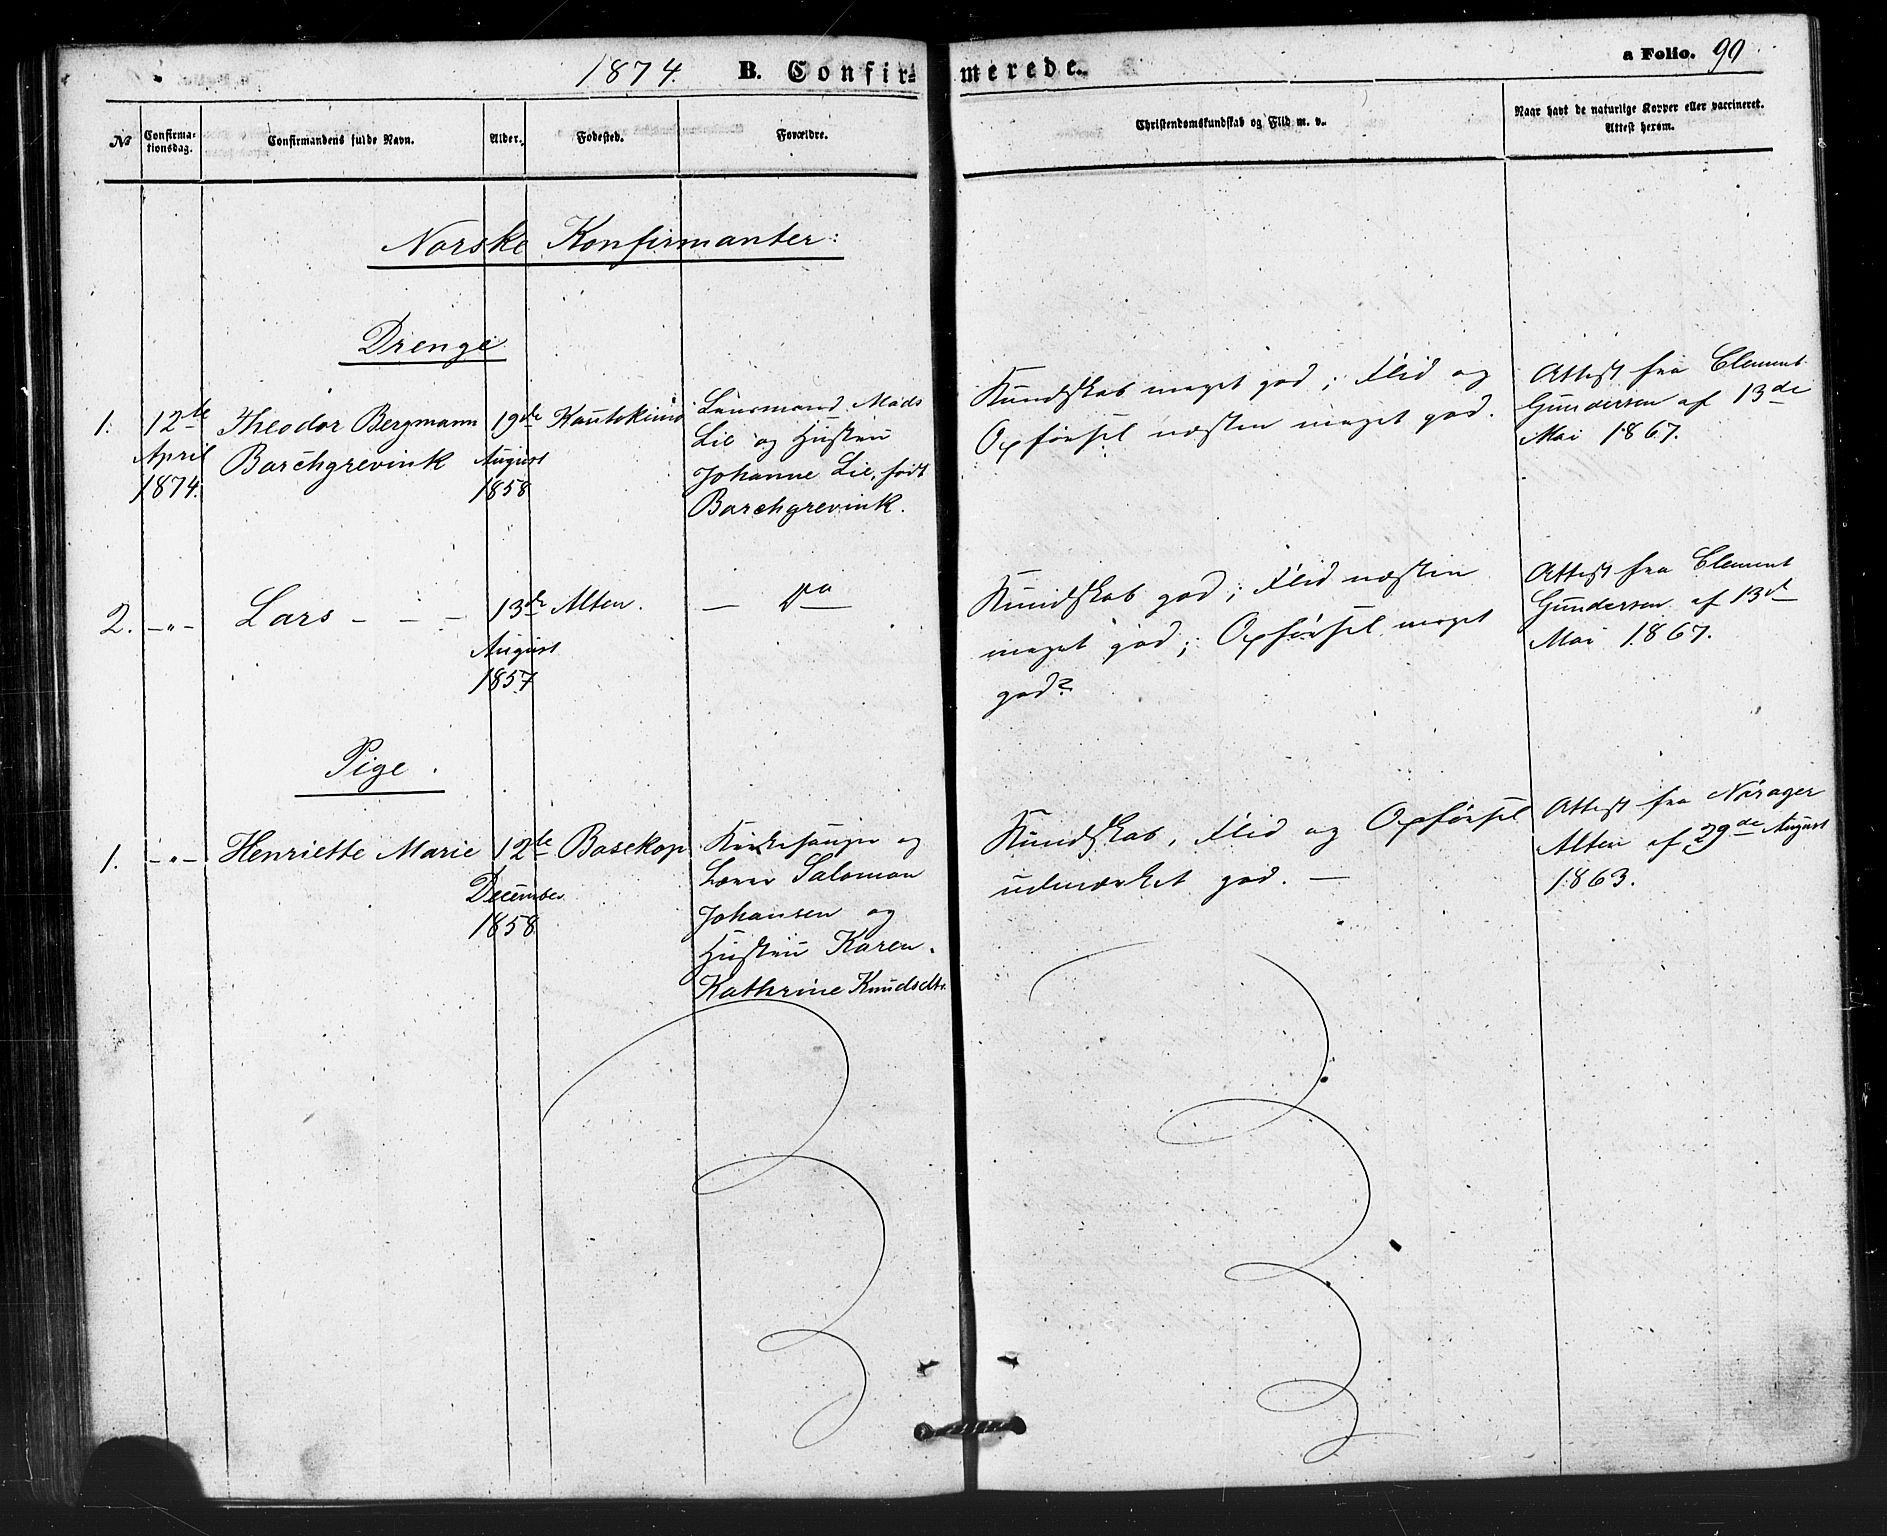 1874. B. Confir- merede. a Folio. 90
No Confirma-tionsdag. Confirmandens fulde Navn. Alder. Fødested. Forældre. Christendomskundskab og Flid m. v. Naar havt de naturlige Kopper eller vaccineret. Attest herom.
Norske Konfirmanter:
Drenge
1. 12te Theodor Bergmann 19de Kautokeino Lensmand Mads Kundskab meget god; Flid og Attest fra Clement
April Borchgrevink August Lie og Hustru Opførsel næsten meget god. Gundersen af 13de
1874. 1858 Johanne Lie, født Mai 1867.
Borchgrevink.
2. -„- Lars - - - 13de Alten. - Do - Kundskab god; Flid næsten Attest fra Clement
August meget god; Opførsel meget Gundersen af 13de
1857 god? Mai 1867.
Pige.
1. -„- Henriette Marie 12te Bosekop Kirkesanger og Kundskab, Flid og Opførsel Attest fra Norager
December Lærer Salomon udmærket god. - Alten af 29de August
1858 Johansen og 1863.
Hustru Karen
Kathrine Knudsdtr.